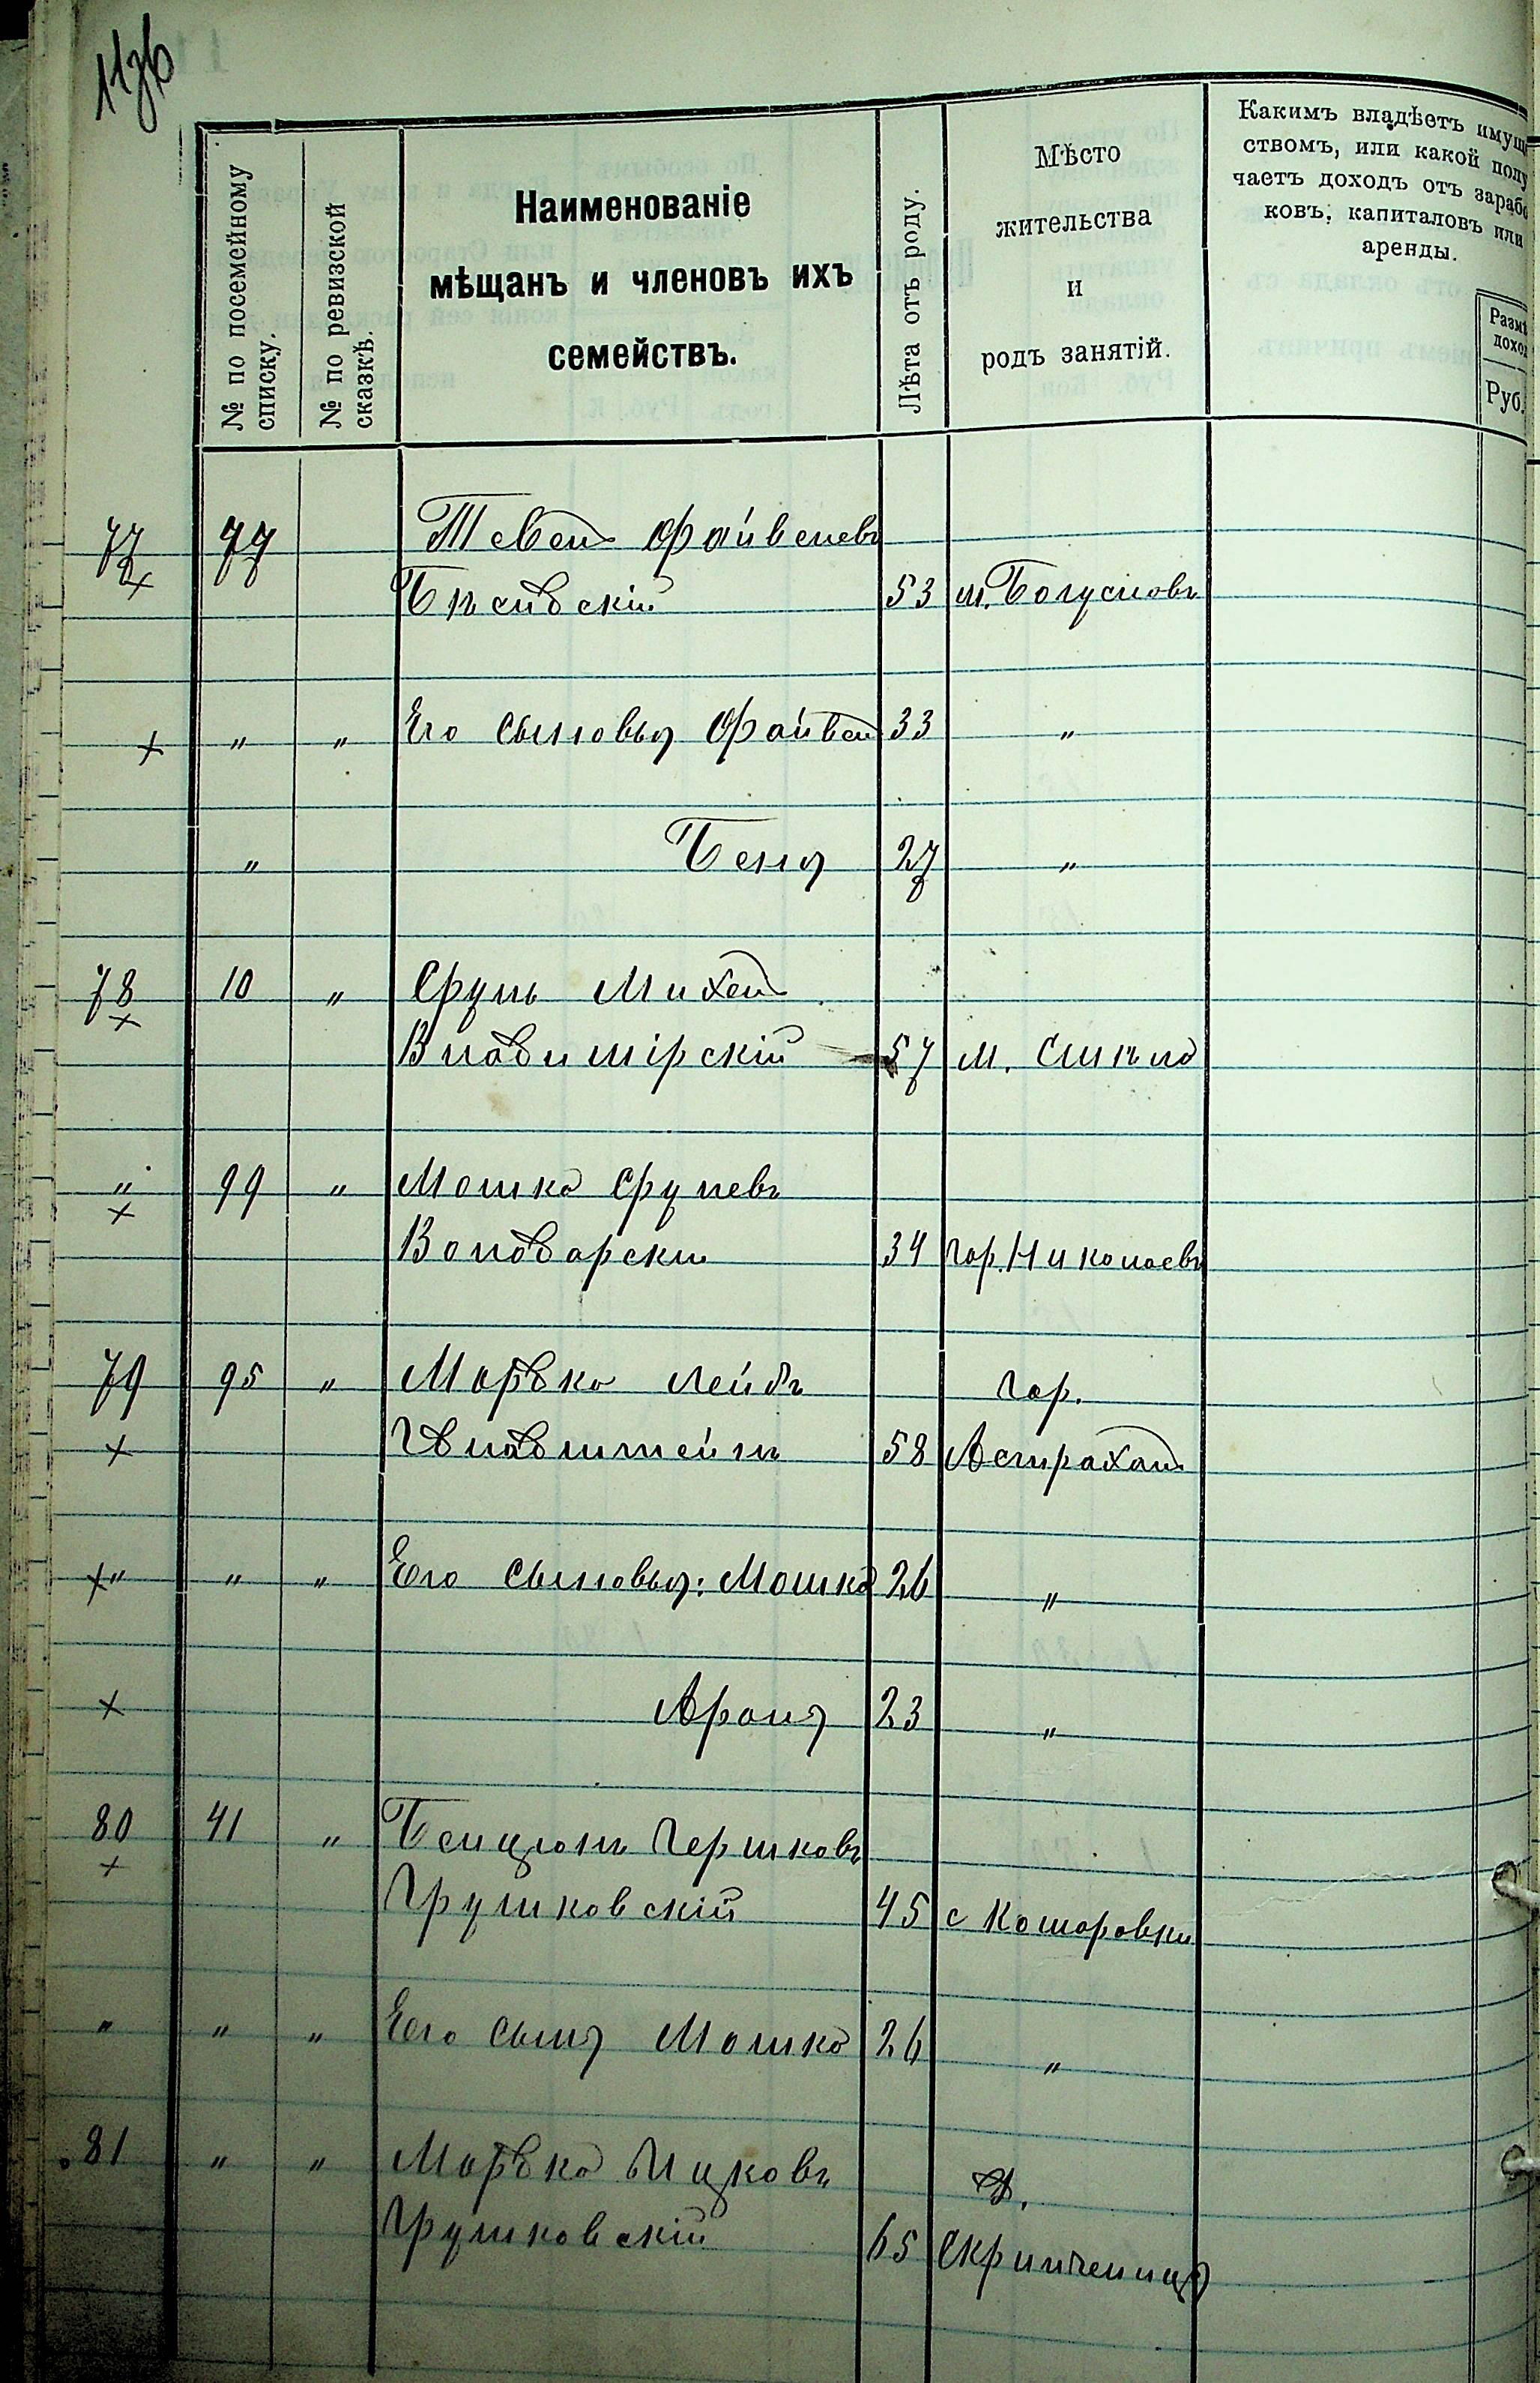 № по посемейному списку.
№ по ревизской сказкѣ.
Наименованіе
мѣщанъ и членовъ ихъ
семействъ.
Лѣта отъ роду.
Мѣсто
жительства
и
родъ занятій.
Какимъ владѣетъ имуще
ствомъ, или какой полу
чаетъ доходъ отъ зарабо
ковъ, капиталовъ или
аренды.
Разм
доход
Руб.
77 77 Тевель Файвелевъ
53 м. Богуславъ
" " Его сыновья Файвель 33 "
" Беня 27 "
78 10 " Сруль Михель
Владимірскій 57 м. Смѣла
" 99 " Мошко Срулевъ
34 гор. Николаевъ
79 95 " Мордко Лейбъ гор.
58 Астрахань
" " " Его сыновья: Мошко 26 "
Аронъ 23 "
80 41 " Бенціонъ Гершковъ
Грушковскій 45 с
" " " Его сынъ Мошко 26 "
81 " " Мордко Ицковъ д.
Грушковскій 65